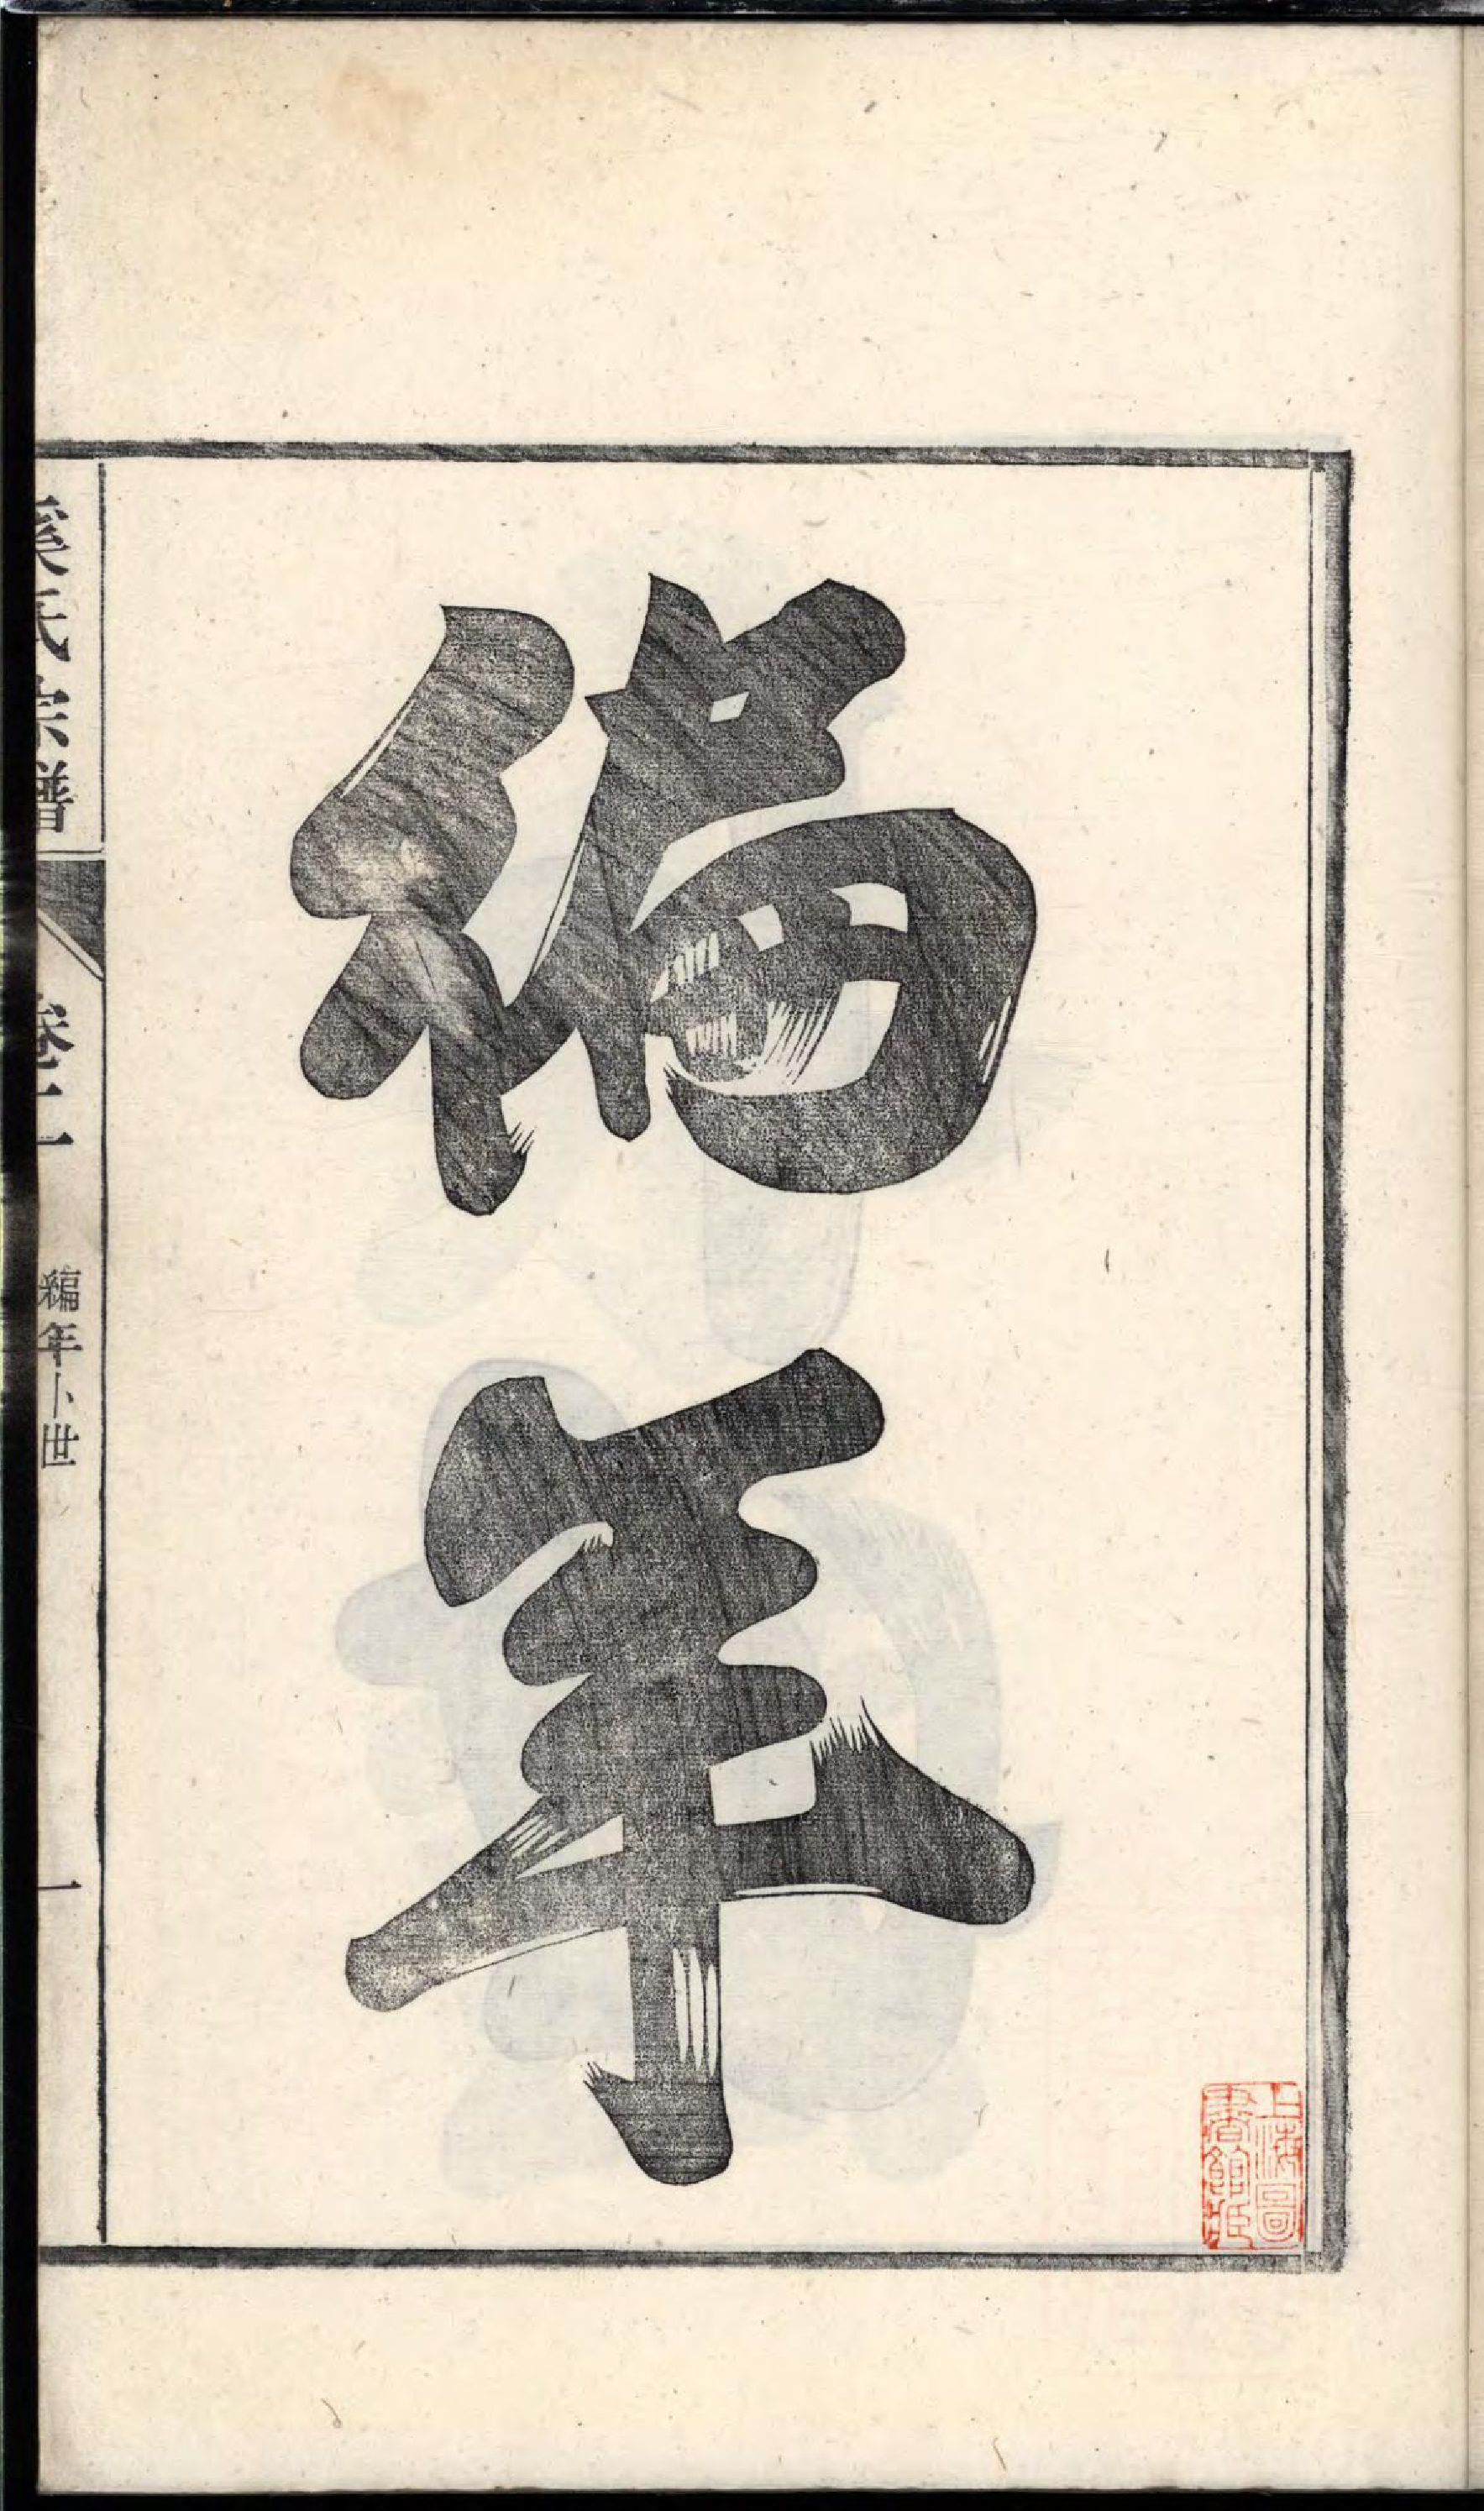 編年
上海圖
書館藏
氏宗譜
卷
編年卜世
一